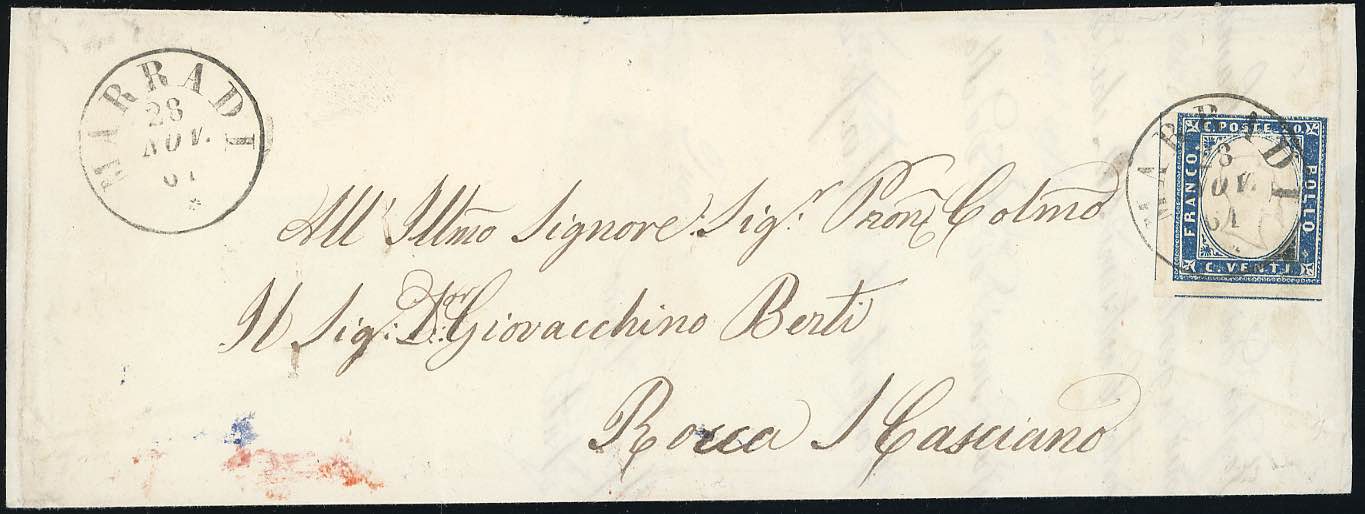 MARRADI
28
NOV.
61
All' Illmo Signore Sig.r Pron. Colmo
Il Sig: Dr: Giovacchino Berti
Rocca S Casciano
C. POSTE 20
FRANCO
BOLLO
C. VENTI
MARRADI
28
NOV.
61